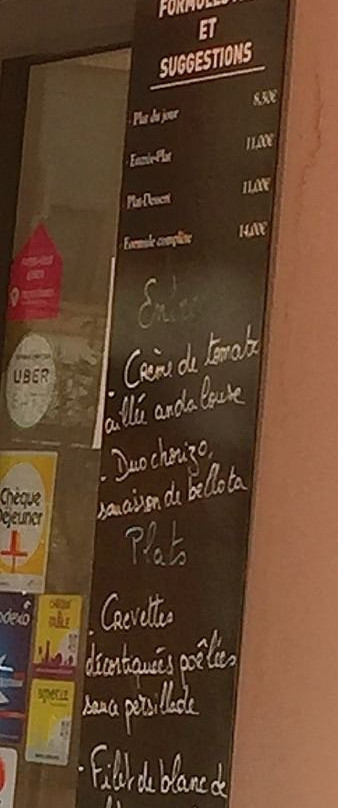 FORMULES
ET
SUGGESTIONS
- Plat du jour 8,50€
- Entrée-Plat 11,00€
Plat-Dessert 11,00€
Formule complète 14,00€
Entrées
- Crème de tomate
aillée andalouse
- Duo chorizo,
saucisson de bellota
Plats
- Crevettes
décortiquées poêlées
sauce persillade
- Filet de blanc de
UBER
Chèque
Déjeuner
odexo
CHÈQUE
de
TABLE